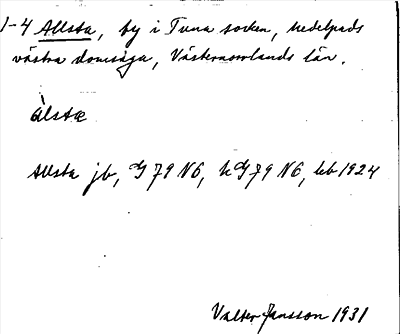 1-4 Allsta, by i Tuna socken, Medelpads
västra domsaga, Västernorrlands län.
àlstæ
Allsta jb, G 79 N6, hG 79 N6, lrb 1924
Valter Jansson 1931